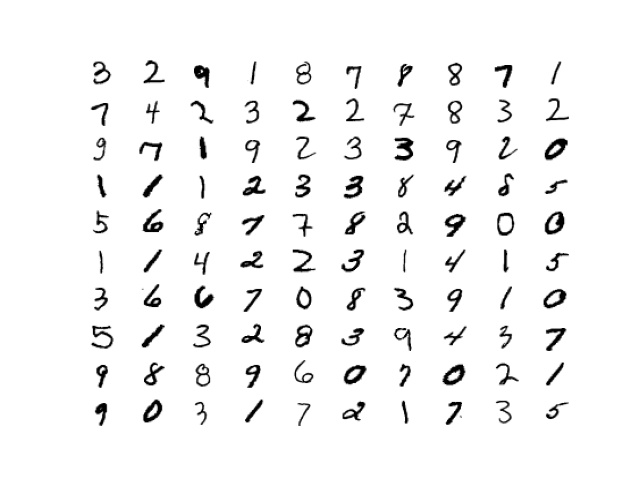 3 2 9 1 8 7 8 8 7 1
7 4 2 3 2 2 7 8 3 2
9 7 1 9 2 3 3 9 2 0
1 1 1 2 3 3 8 4 8 5
5 6 8 7 7 8 2 9 0 0
1 1 4 2 2 3 1 4 1 5
3 6 6 7 0 8 3 9 1 0
5 1 3 2 8 3 9 4 3 7
9 8 8 9 6 0 7 0 2 1
9 0 3 1 7 2 1 7 3 5